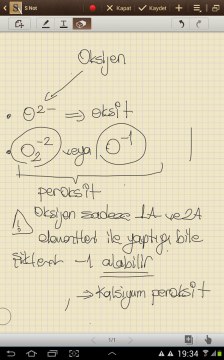 S Not
Kapat
Kaydet
Oksijen
• O²⁻ ⇒ oksit
• O₂⁻² veya O⁻¹
peroksit
Oksijen sadece 1A ve 2A
elementleri ile yaptığı bile
şiklerde -1 alabilir
⇒ Kalsiyum peroksit
1/1
19:34